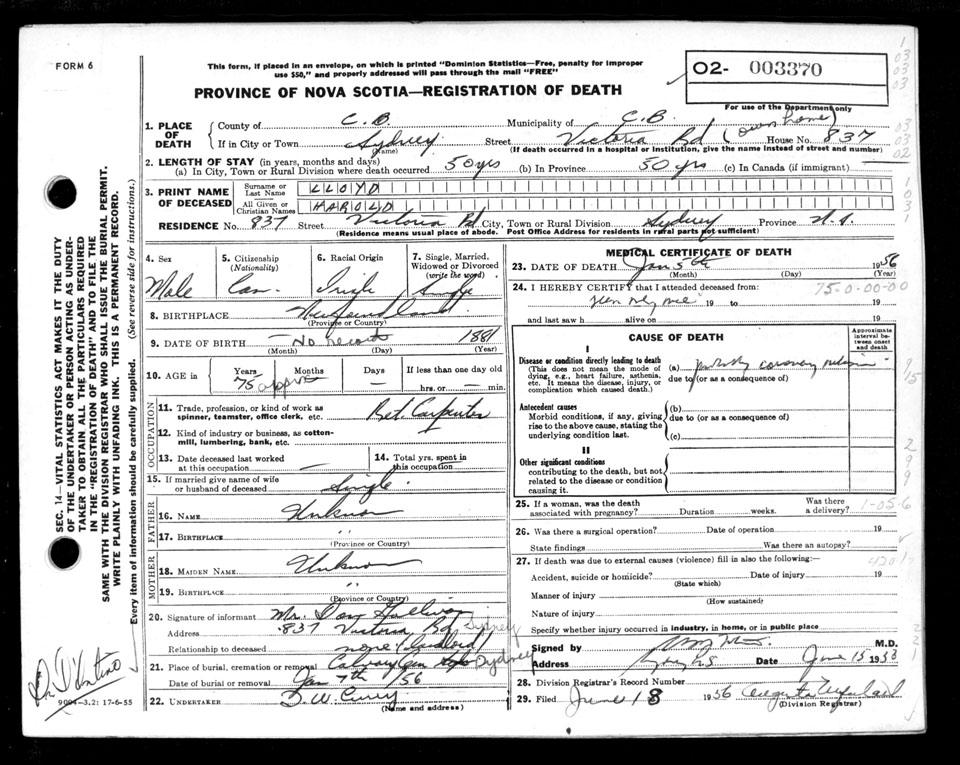 FORM 6
This form, if placed in an envelope, on which is printed "Dominion Statistics—Free, penalty for improper
use $50," and properly addressed will pass through the mail "FREE"
02- 003370
PROVINCE OF NOVA SCOTIA—REGISTRATION OF DEATH
For use of the Department only
1. PLACE OF DEATH
County of C.B. Municipality of C.B.
If in City or Town Sydney Street Victoria Rd (own home) House No. 837
(Name) (If death occurred in a hospital or institution, give the name instead of street and number)
2. LENGTH OF STAY (in years, months and days)
(a) In City, Town or Rural Division where death occurred 50 yrs (b) In Province 50 yrs (c) In Canada (if immigrant)
3. PRINT NAME OF DECEASED
Surname or Last Name LLOYD
All Given or Christian Names HAROLD
RESIDENCE No. 837 Street Victoria Rd City, Town or Rural Division Sydney Province N.S.
(Residence means usual place of abode. Post Office Address for residents in rural parts not sufficient)
4. Sex 5. Citizenship (Nationality) 6. Racial Origin 7. Single, Married, Widowed or Divorced (write the word)
Male Can Irish Single
8. BIRTHPLACE Newfoundland
(Province or Country)
9. DATE OF BIRTH — No record 1881
(Month) (Day) (Year)
10. AGE in Years Months Days If less than one day old
75 approx — hrs. or — min.
OCCUPATION
11. Trade, profession, or kind of work as spinner, teamster, office clerk, etc. Ret. Carpenter
12. Kind of industry or business, as cotton-mill, lumbering, bank, etc.
13. Date deceased last worked at this occupation —
14. Total yrs. spent in this occupation
15. If married give name of wife or husband of deceased Single
FATHER
16. NAME Unknown
17. BIRTHPLACE "
(Province or Country)
MOTHER
18. MAIDEN NAME Unknown
19. BIRTHPLACE "
(Province or Country)
20. Signature of informant Mr. Dan Sullivan
Address 837 Victoria Rd Sydney
Relationship to deceased none (landlord)
21. Place of burial, cremation or removal Calvary Cem Sydney
Date of burial or removal Jan 7th /56
22. UNDERTAKER D.W. Curry
(Name and address)
MEDICAL CERTIFICATE OF DEATH
23. DATE OF DEATH Jan 5th 1956
(Month) (Day) (Year)
24. I HEREBY CERTIFY that I attended deceased from: 75-0-00-00
19 to 19
and last saw h alive on 19
CAUSE OF DEATH
Approximate interval between onset and death
I
Disease or condition directly leading to death
(This does not mean the mode of dying, e.g., heart failure, asthenia, etc. It means the disease, injury, or complication which caused death.)
(a) probably coronary
due to (or as a consequence of)
Antecedent causes
Morbid conditions, if any, giving rise to the above cause, stating the underlying condition last.
(b)
due to (or as a consequence of)
(c)
II
Other significant conditions
contributing to the death, but not related to the disease or condition causing it.
25. If a woman, was the death associated with pregnancy? Duration weeks. Was there a delivery? 1-05-6
26. Was there a surgical operation? Date of operation 19
State findings Was there an autopsy?
27. If death was due to external causes (violence) fill in also the following:
Accident, suicide or homicide? Date of injury 19
(State which)
Manner of injury
(How sustained)
Nature of injury
Specify whether injury occurred in industry, in home, or in public place
Signed by M.D.
Address Sydney NS Date June 15 1953
28. Division Registrar's Record Number
29. Filed June 18 1956
(Division Registrar)
SEC. 14—VITAL STATISTICS ACT MAKES IT THE DUTY
OF THE UNDERTAKER OR PERSON ACTING AS UNDER-
TAKER TO OBTAIN ALL THE PARTICULARS REQUIRED
IN THE "REGISTRATION OF DEATH" AND TO FILE THE
SAME WITH THE DIVISION REGISTRAR WHO SHALL ISSUE THE BURIAL PERMIT.
WRITE PLAINLY WITH UNFADING INK. THIS IS A PERMANENT RECORD.
Every item of information should be carefully supplied. (See reverse side for instructions.)
9004-3.2: 17-6-55